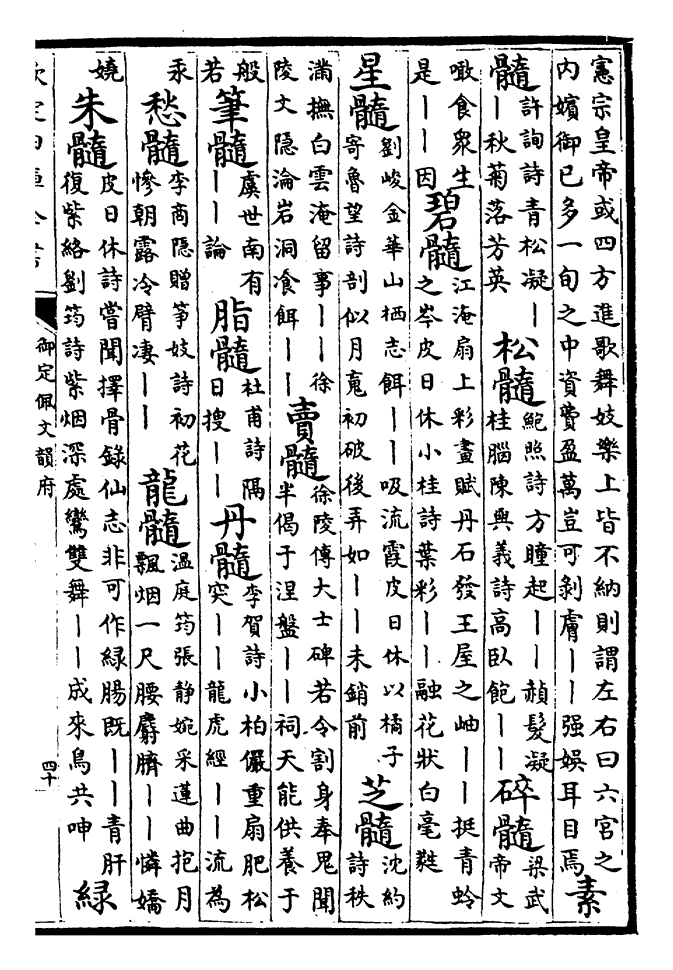 憲宗皇帝或四方進歌舞妓樂上皆不納則謂左右曰六宮之
內嬪御已多一旬之中資費盈萬豈可剝膚丨丨强娛耳目焉
素
髓
許詢詩青松凝丨
丨秋菊落芳英
松髓
鮑照詩方瞳起丨丨赬髮凝
桂腦陳與義詩高臥飽丨丨
碎髓
梁武
帝文
噉食衆生
是丨丨因
碧髓
江淹扇上彩畫賦丹石發王屋之岫丨丨挺青蛉
之岑皮日休小桂詩葉彩丨丨融花狀白毫㲯
星髓
劉峻金華山栖志餌丨丨吸流霞皮日休以橘子
寄魯望詩剖似月䰟初破後弄如丨丨未銷前
芝髓
沈約
詩秩
滿撫白雲淹留事丨丨徐
陵文隱淪岩洞飡餌丨丨
賣髓
徐陵傅大士碑若令割身奉鬼聞
半偈于涅盤丨丨祠天能供養于
般
若
筆髓
虞世南有
丨丨論
脂髓
杜甫詩隔
日搜丨丨
丹髓
李賀詩小柏儼重扇肥松
突丨丨龍虎經丨丨流為
汞
愁髓
李商隱贈箏妓詩初花
慘朝露冷臂凄丨丨
龍髓
溫庭筠張静婉采蓮曲抱月
飄烟一尺腰麝臍丨丨憐嬌
嬈
朱髓
皮日休詩嘗聞擇骨錄仙志非可作緑腸既丨丨青肝
復紫絡劉筠詩紫烟深處鸞雙舞丨丨成來鳥共呻
緑
欽定四庫全書
御定佩文韻府
四十